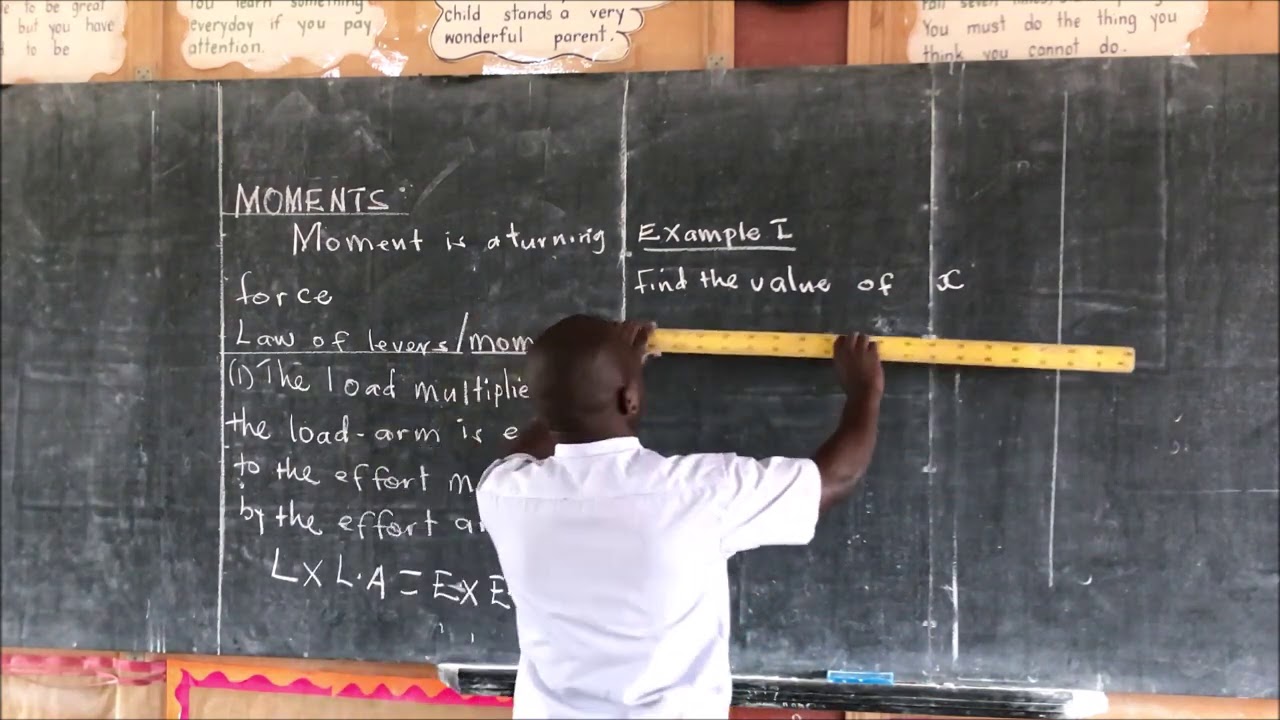 to be great
but you have
to be
You learn something
everyday if you pay
attention.
child stands a very
wonderful parent.
You must do the thing you
think you cannot do.
MOMENTS:
Moment is a turning
force
Law of levers/mom
(1) The load multiplie
the load-arm is e
to the effort m
by the effort a
L X L.A = E X E
Example I
Find the value of x